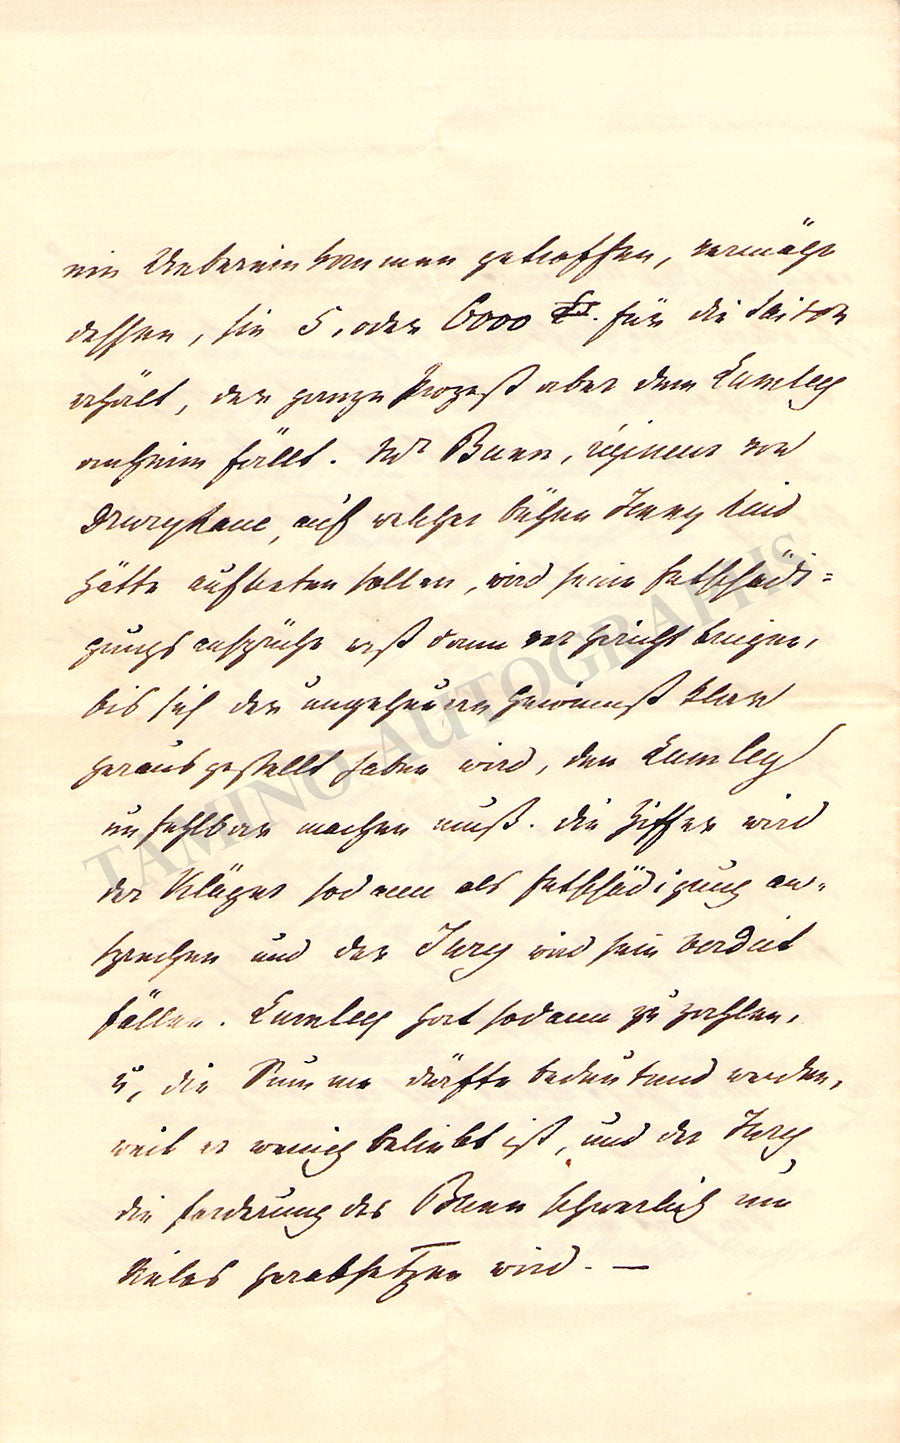 ein Uebereinkommen getroffen, vermöge
dessen, sie 5, oder 6000 £ für die Saison
erhält, der ganze Prozeß aber dem Lumley
anheim fällt. Mr Bunn, regisseur von
Drurylane, auf welcher bühne Jenny Lind
hätte auftreten sollen, wird seine Entschädi=
gungs ansprüche erst dann vor Gericht bringen,
bis sich der ungeheuere Gewinnst klar
herausgestellt haben wird, den Lumley
unfehlbar machen muß. Die Ziffer wird
der Kläger sodann als Entschädigung an-
sprechen und der Jury wird sein Verdict
fällen. Lumley hat sodann zu zahlen,
u, die Summe dürfte bedeutend werden,
weil er wenig beliebt ist, und der Jury
die Forderung des Bunn schwerlich um
Vieles herabsetzen wird. —
TAMINO AUTOGRAPHS